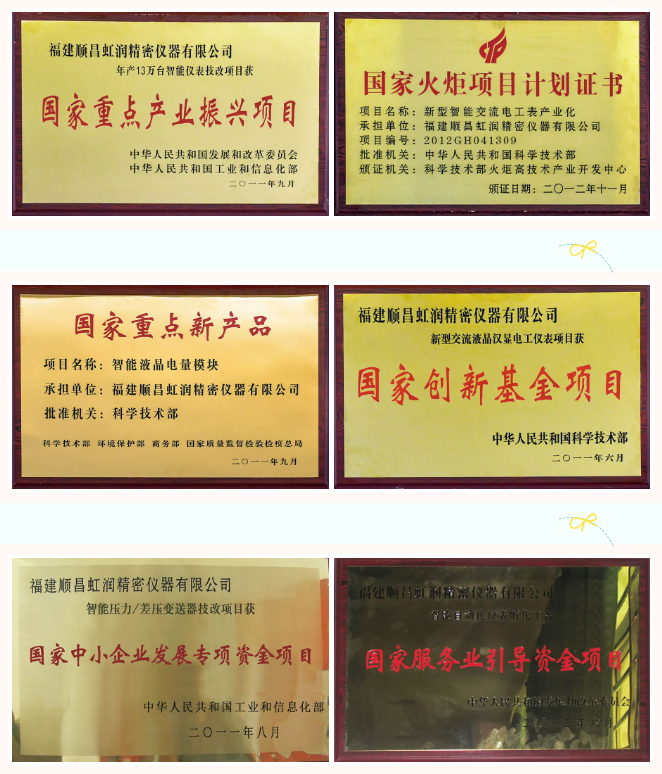 福建顺昌虹润精密仪器有限公司
年产13万台智能仪表技改项目获
国家重点产业振兴项目
中华人民共和国发展和改革委员会
中华人民共和国工业和信息化部
二〇一一年九月
国家火炬项目计划证书
项目名称：新型智能交流电工表产业化
承担单位：福建顺昌虹润精密仪器有限公司
项目编号：2012GH041309
批准机关：中华人民共和国科学技术部
颁证机关：科学技术部火炬高技术产业开发中心
颁证日期：二〇一二年十一月
国家重点新产品
项目名称：智能液晶电量模块
承担单位：福建顺昌虹润精密仪器有限公司
批准机关：科学技术部
科学技术部 环境保护部 商务部 国家质量监督检验检疫总局
二〇一一年九月
福建顺昌虹润精密仪器有限公司
新型交流液晶汉显电工仪表项目获
国家创新基金项目
中华人民共和国科学技术部
二〇一一年六月
福建顺昌虹润精密仪器有限公司
智能压力/差压变送器技改项目获
国家中小企业发展专项资金项目
中华人民共和国工业和信息化部
二〇一一年八月
福建顺昌虹润精密仪器有限公司
国家服务业引导资金项目
中华人民共和国发展和改革委员会